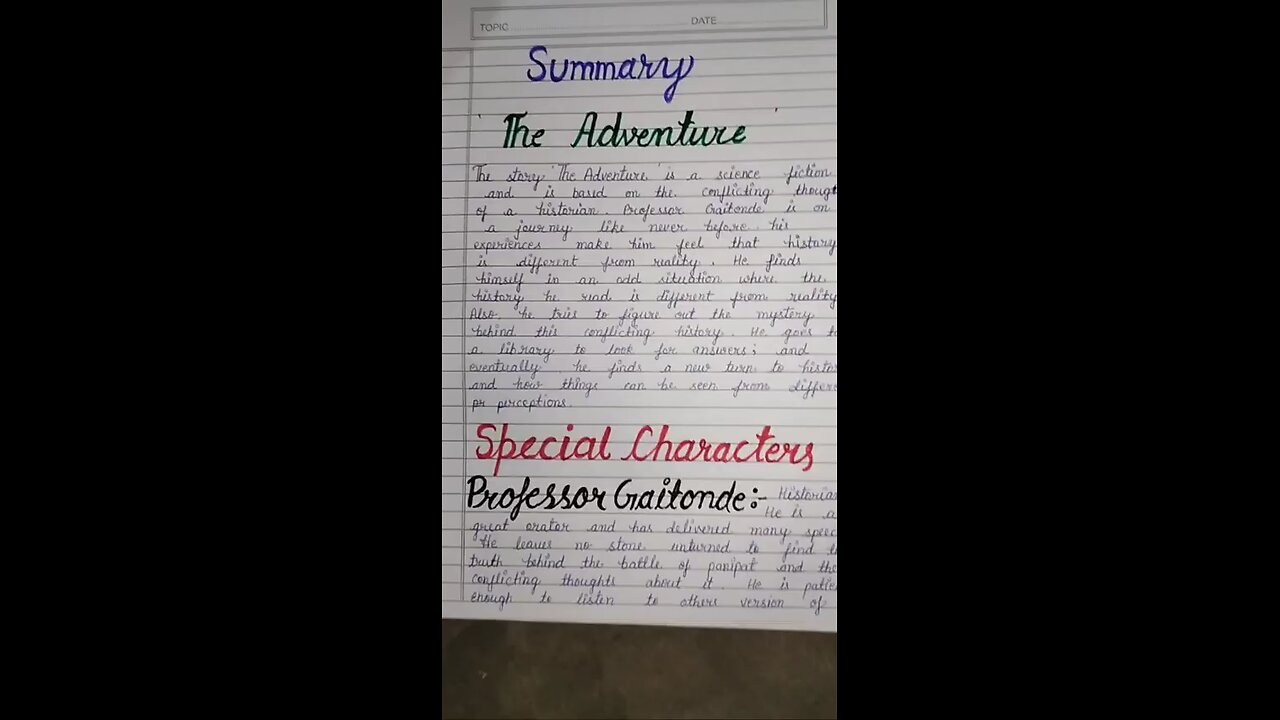 TOPIC DATE
Summary
' The Adventure '
The story 'The Adventure' is a science fiction
and is based on the conflicting though
of a historian. Professor Gaitonde is on
a journey like never before. his
experiences make him feel that history
is different from reality. He finds
himself in an odd situation where the
history he read is different from reality
Also, he tries to figure out the mystery
behind this conflicting history. He goes t
a library to look for answers; and
eventually he finds a new turn to histo
and how things can be seen from differe
pr perceptions.
Special Characters
Professor Gaitonde:- Historia
He is a
great orator and has delivered many speec
He leaves no stone unturned to find t
truth behind the battle of panipat and the
conflicting thoughts about it. He is patie
enough to listen to others version of